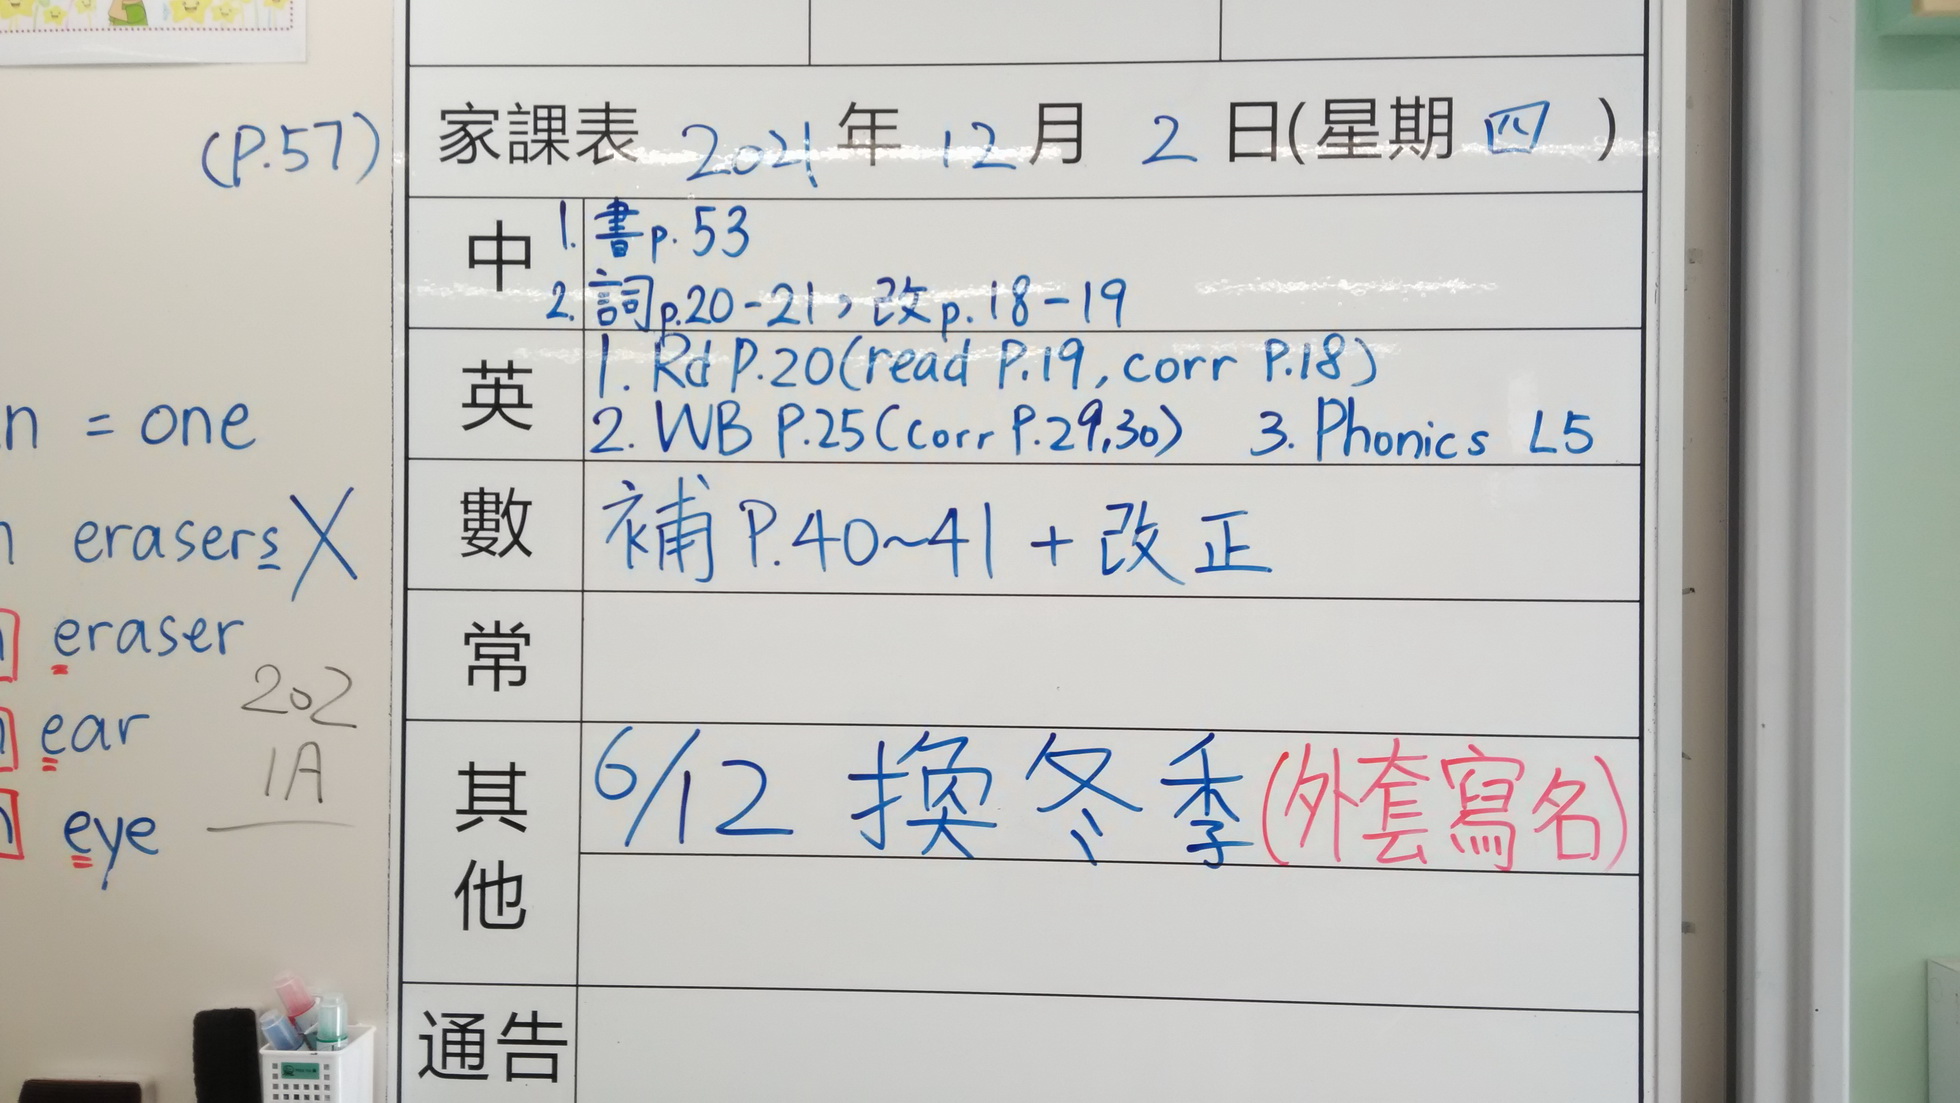 (P.57)
n = one
erasersX
eraser
ear
eye
202
1A
家課表 2021年 12月 2日(星期四)
中
1. 書p.53
2. 詞p.20-21，改p.18-19
英
1. Rd P.20(read P.19, corr P.18)
2. WB P.25(corr P.29,30) 3. Phonics L5
數
補 P.40~41 + 改正
常
其他
6/12 換冬季(外套寫名)
通告